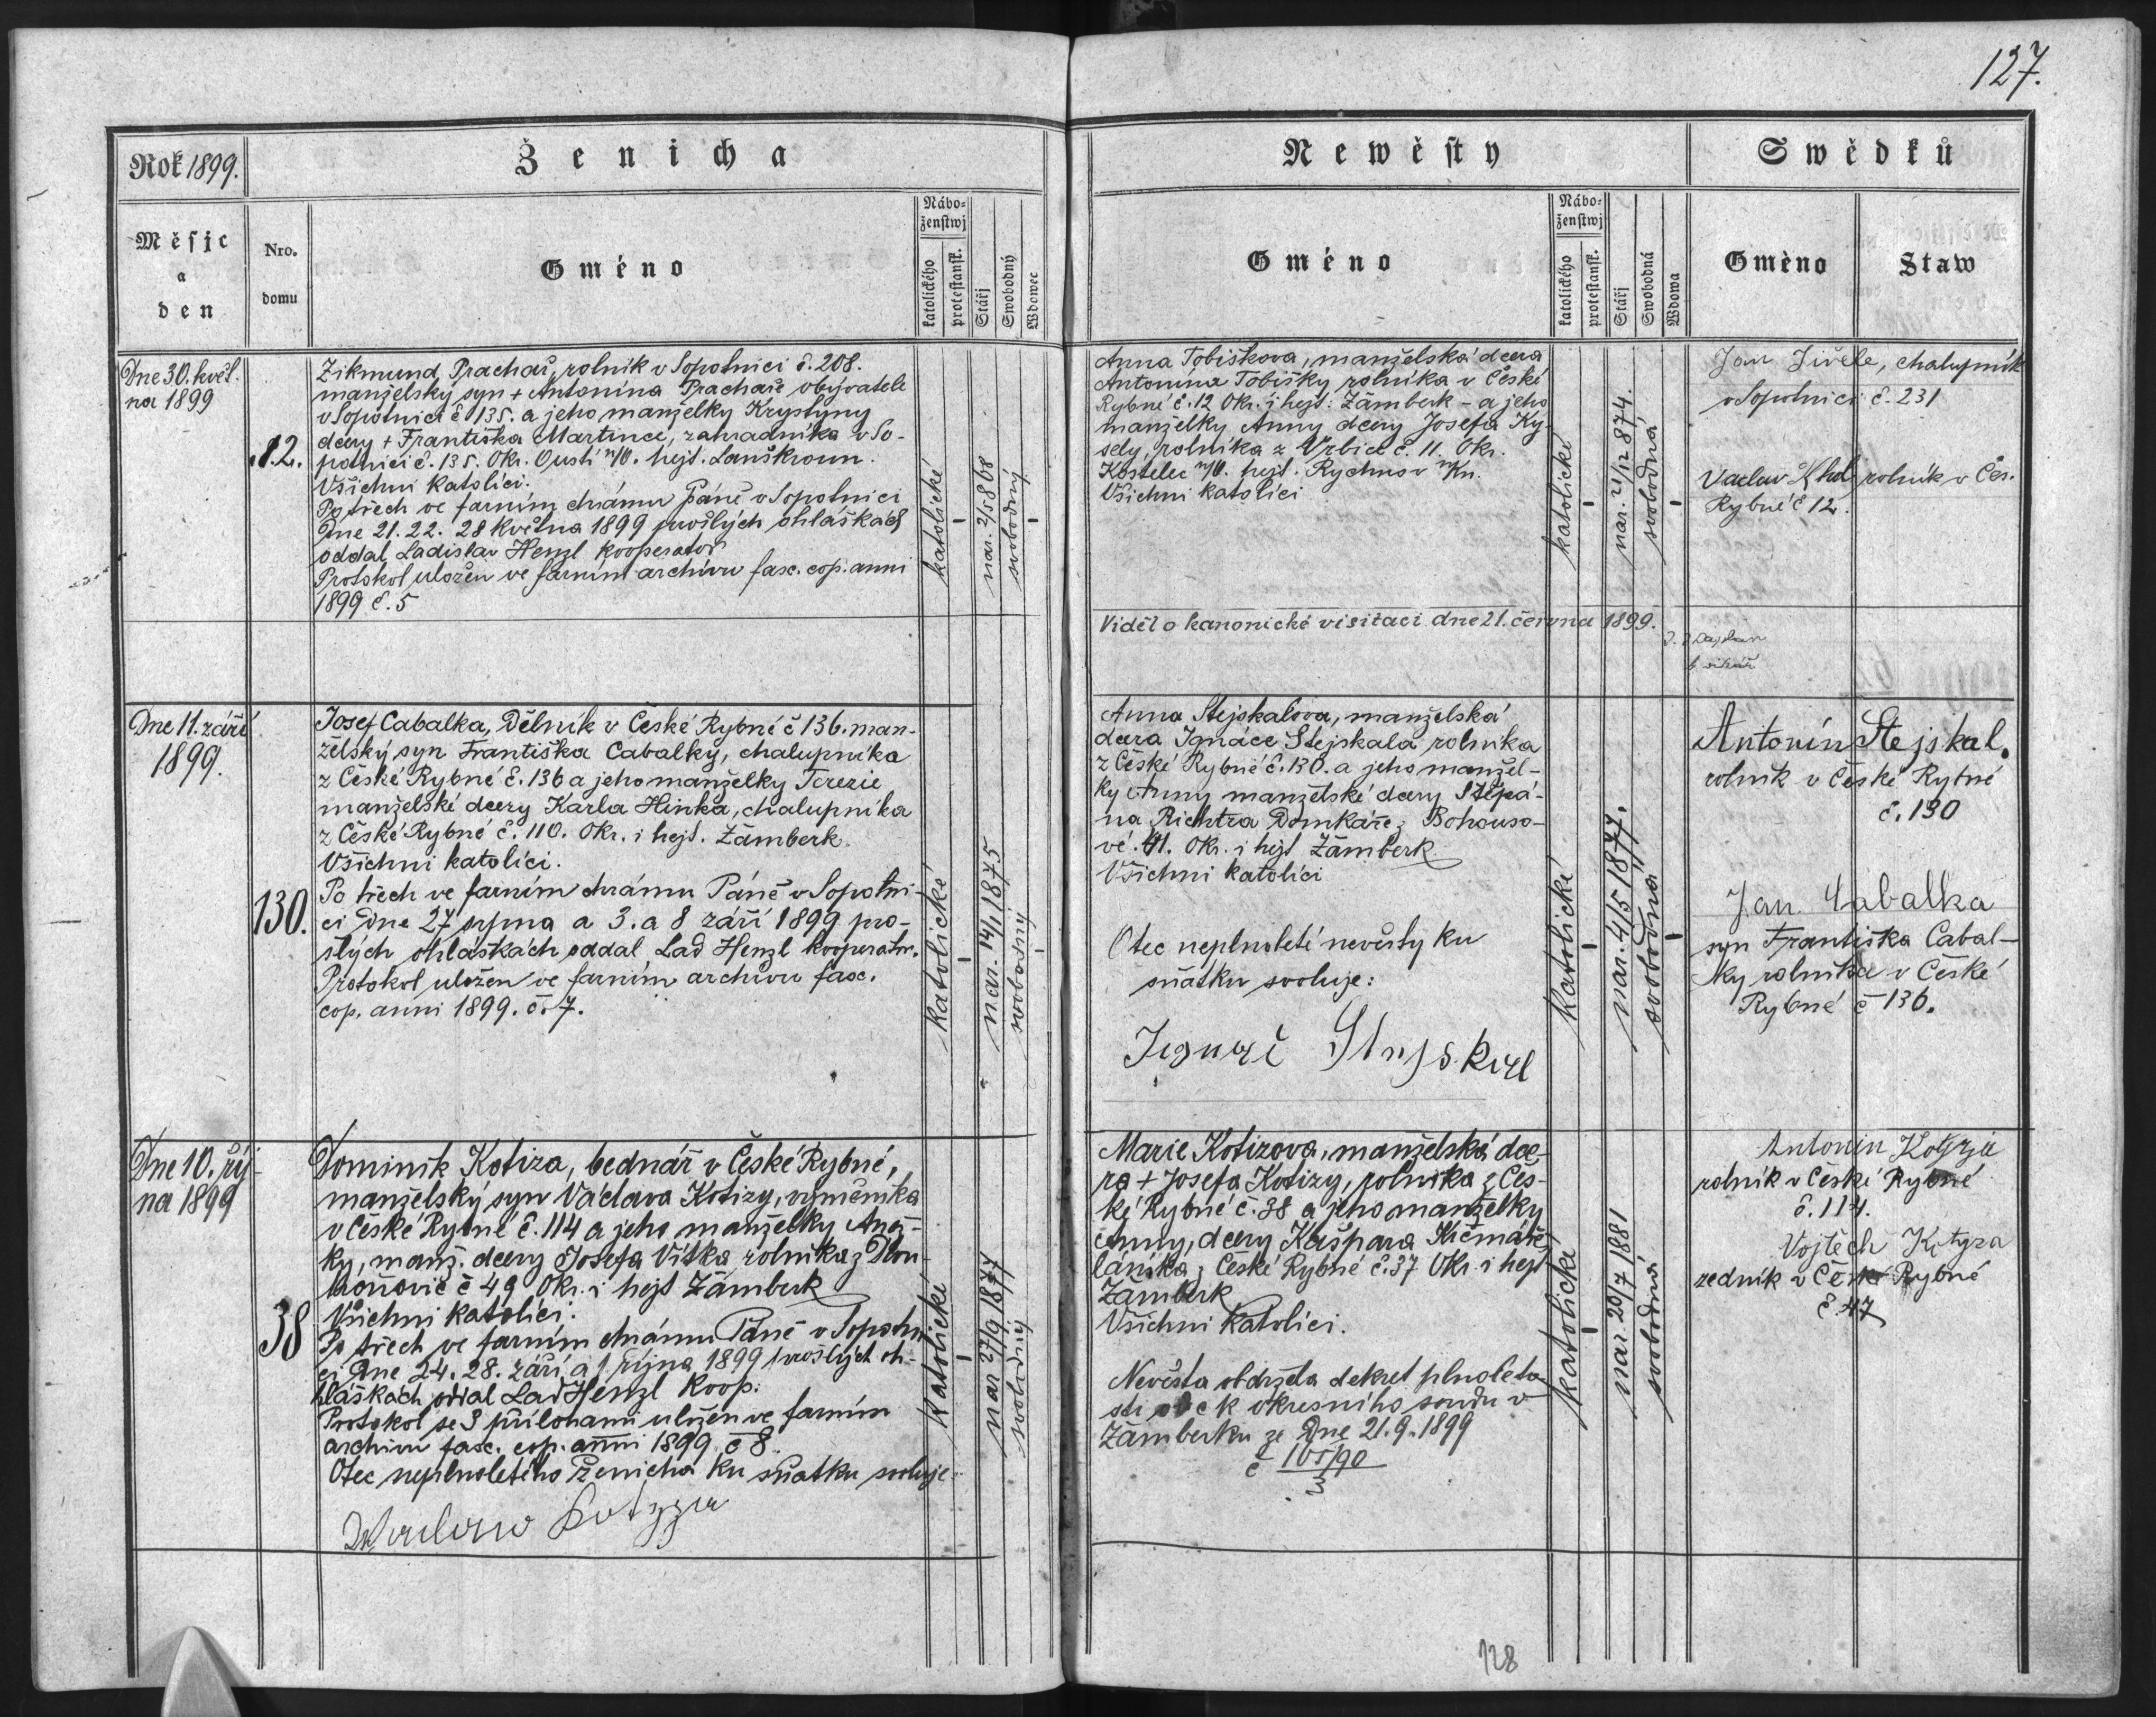 127.
Rok 1899.
Ženicha
Newěsty
Swědků
Měsjc
a
den
Nro.
domu
Gméno
Nábo-
ženstwj
katolického
protestansk.
Stářj
Swobodný
Wdowec
Gméno
Nábo-
ženstwj
katolického
protestansk.
Stářj
Swobodná
Wdowa
Gméno
Staw
Dne 30. květ-
na 1899
12.
Zikmund Prachař, rolník v Sopotnici č. 208.
manželský syn + Antonína Prachaře obyvatele
v Sopotnici č 135. a jeho manželky Krystýny
dcery + Františka Martince, zahradníka v So-
potnici č. 135. Okr. Ousti n/O. hejt. Lanškroun.
Všichni katolíci.
Po třech ve farním chrámu Páně v Sopotnici
Dne 21. 22. 28 května 1899 prošlých ohláškách
oddal Ladislav Henzl kooperator
Protokol uložen ve farním archivu fasc. cop. anni
1899 č. 5
katolické
nar. 2/5 868
svobodný
Anna Tobiškova, manželská dcera
Antonína Tobišky rolníka v České
Rybné č. 12 Okr. i hejt: Žamberk - a jeho
manželky Anny dcery Josefa Ky-
sely, rolníka z Vrbice č. 11. Okr.
Kostelec n/O. hejt. Rychnov n/Kn.
Všichni katolíci
katolické
nar. 21/12 874.
svobodná
Jan, chalupník
v Sopotnici č. 231
Vaclav rolník v Čes.
Rybné č 12.
Viděl o kanonické visitaci dne 21. června 1899.
vikář
Dne 11. září
1899.
130.
Josef Cabalka, Dělník v České Rybné č 136. man-
želský syn Františka Cabalky, chalupníka
z České Rybné č. 136 a jeho manželky Terezie
manželské dcery Karla Hinka, chalupníka
z České Rybné č. 110. Okr. i hejt. Žamberk.
Všichni katolíci.
Po třech ve farním chrámu Páně v Sopotni-
ci Dne 27 srpna a 3. a 8 září 1899 pro-
šlých ohláškách oddal Lad Henzl kooperator.
Protokol uložen ve farním archivu fasc.
cop. anni 1899. č. 7.
katolické
nar. 14/1 1875
svobodný
Anna Stejskalova, manželská
dcera Ignáce Stejskala rolníka
z České Rybné č. 130. a jeho manžel-
ky Anny manželské dcery Štěpá-
na Richtra Domkáře z Bohouso-
vé . 41. Okr. i hejt Žamberk.
Všichni katolíci
Otec neplnoleté nevěsty ku
sňatku svoluje:
Ignac Stejskal
katolické
nar. 4/5 1877.
svobodná
Antonín Stejskal.
rolník v České Rybné
č. 130
Jan Cabalka
syn Františka Cabal-
ky rolníka v České
Rybné č 136.
Dne 10. říj-
na 1899
38
Dominik Kotiza, bednář v České Rybné,
manželský syn Václava Kotizy, výměnníka
v České Rybné č. 114 a jeho manželky Anež-
ky, manž. dcery Josefa Vítka rolníka z Dlou-
hoňovic č 49 Okr. i hejt Žamberk
Všichni katolíci.
Po třech ve farním chrámu Páně v Sopotni-
ci Dne 24. 28. září a 1 října 1899 prošlých oh-
láškách oddal Lad Henzl koop.
Protokol se 3 přílohami uložen ve farním
archivu fasc. cop. anni 1899 č 8.
Otec neplnoletého ženicha ku sňatku svoluje:
Waclaw Kotyza
katolické
nar 27/9 1877
svobodný
Marie Kotizova, manželská dce-
ra + Josefa Kotizy, rolníka z Čes-
ké Rybné č. 38 a jeho manželky
Anny, dcery Kašpara Kičmáře
láníka z České Rybné č. 37 Okr. i hejt
Žamberk
Všichni katolíci.
Nevěsta obdržela dekret plnoleto-
sti od c k okresního soudu v
Žamberku ze Dne 21. 9. 1899
č 105/90
3
katolické
nar. 20/7 1881
svobodná
Antonin Kotyza
rolník v České Rybné
č. 114.
Vojtěch Kotyza
zedník v České Rybné
č. 47
128